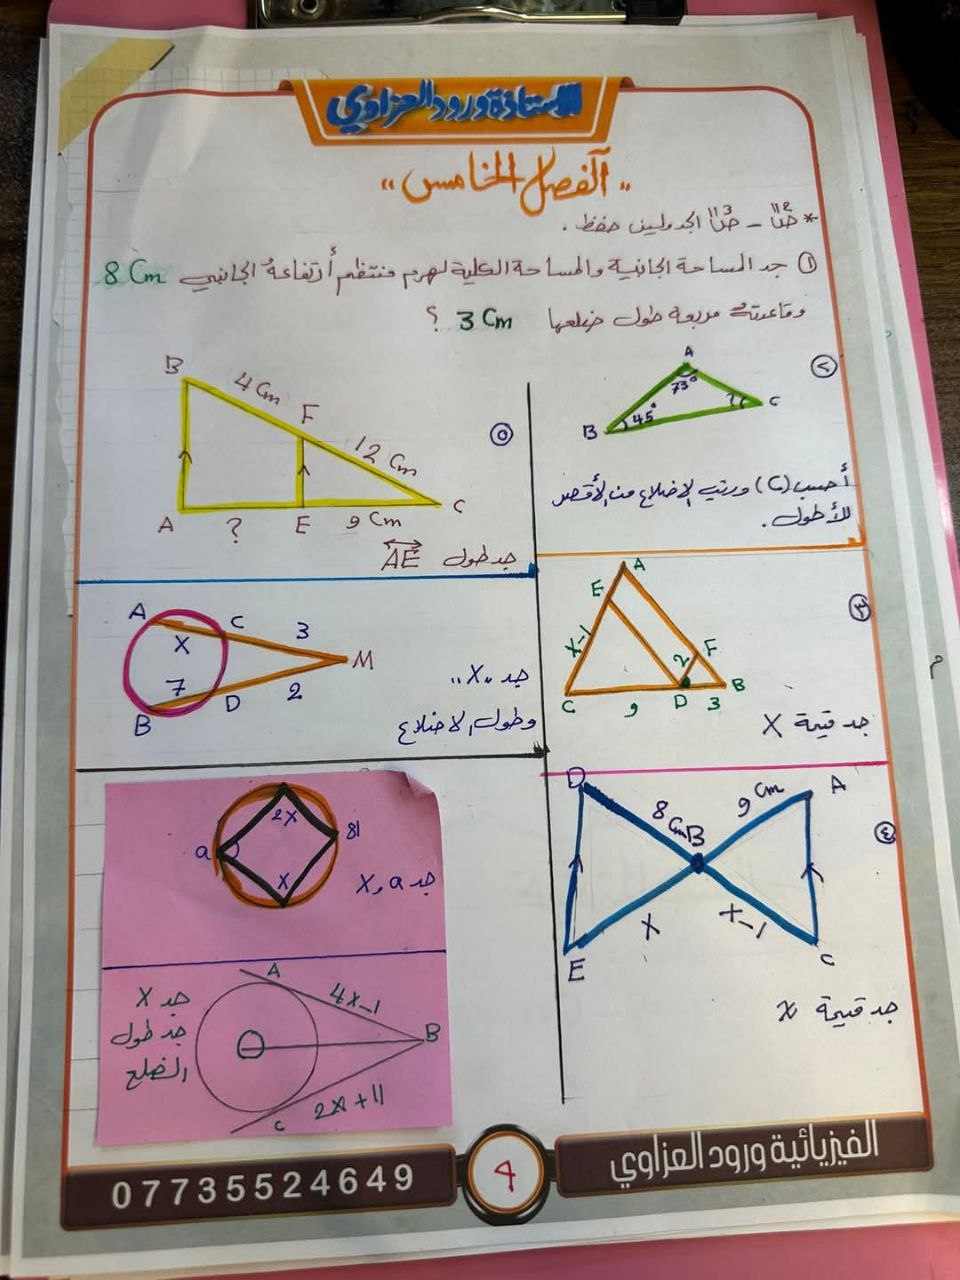 الاستاذة ورود العزاوي
,, الفصل الخامس ,,
* ص112 - ص113 الجدولين حفظ .
① جد المساحة الجانبية والمساحة الكلية لهرم منتظم أرتفاعهُ الجانبي 8 Cm
وقاعدتهُ مربعة طول ضلعها 3 Cm ؟
②
A
73°
B
45°
؟
C
أحسب (C) ورتب الاضلاع من الأقصر
للأطول .
⑤
B
4 Cm
F
12 Cm
A
?
E
9 Cm
C
جد طول AE
③
A
E
X-1
F
2
C
9
D
3
B
جد قيمة X
A
C
3
X
M
7
2
B
D
جد "X"
وطول الاضلاع
④
D
8 Cm
B
9 Cm
A
E
X
X-1
C
جد قيمة X
2X
a
81
X
جد a و X
A
4X-1
B
2X+11
C
جد X
جد طول
الضلع
07735524649
9
الفيزيائية ورود العزاوي